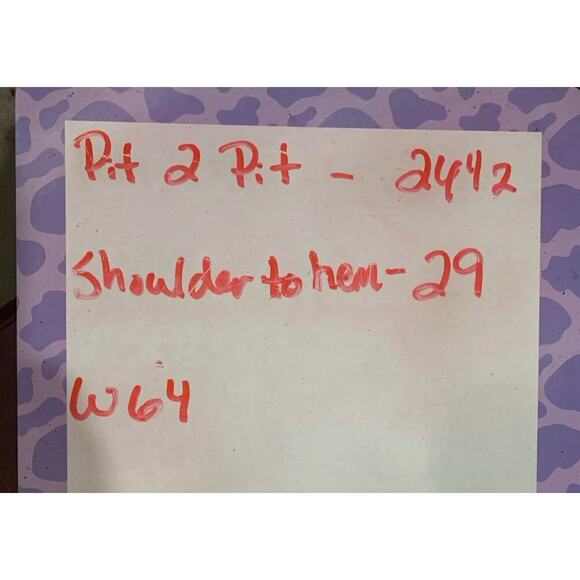 Pit 2 Pit - 24 1/2
Shoulder to hem - 29
W64